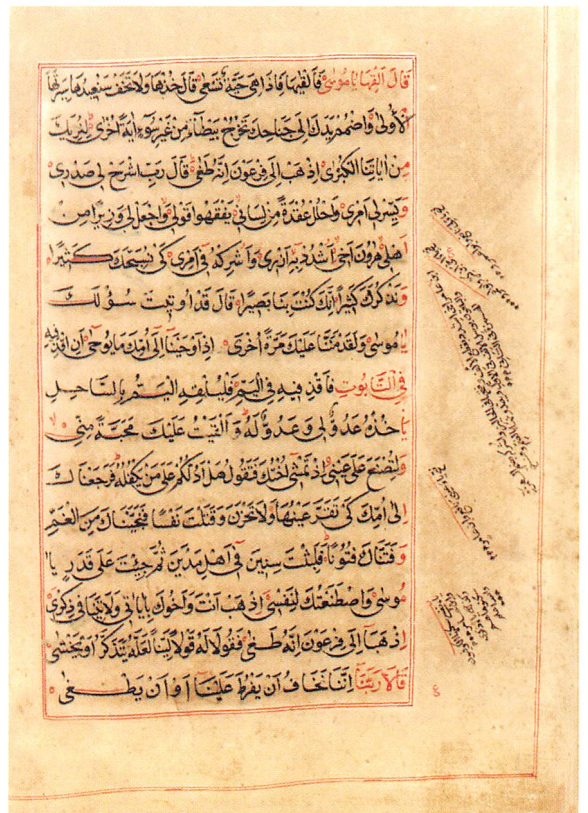 قَالَ اَلْقِهَا يَا مُوسٰى فَاَلْقٰيهَا فَاِذَا هِىَ حَيَّةٌ تَسْعٰى قَالَ خُذْهَا وَلَا تَخَفْ سَنُعِيدُهَا سِيرَتَهَا
الْاُولٰى وَاضْمُمْ يَدَكَ اِلٰى جَنَاحِكَ تَخْرُجْ بَيْضَآءَ مِنْ غَيْرِ سُوٓءٍ اٰيَةً اُخْرٰى لِنُرِيَكَ
مِنْ اٰيَاتِنَا الْكُبْرٰى اِذْهَبْ اِلٰى فِرْعَوْنَ اِنَّهُ طَغٰى قَالَ رَبِّ اشْرَحْ لِى صَدْرِى
وَيَسِّرْ لِى اَمْرِى وَاحْلُلْ عُقْدَةً مِنْ لِسَانِى يَفْقَهُوا قَوْلِى وَاجْعَلْ لِى وَزِيرًا مِنْ
اَهْلِى هٰرُونَ اَخِى اُشْدُدْ بِهِ اَزْرِى وَاَشْرِكْهُ فِى اَمْرِى كَىْ نُسَبِّحَكَ كَثِيرًا
وَنَذْكُرَكَ كَثِيرًا اِنَّكَ كُنْتَ بِنَا بَصِيرًا قَالَ قَدْ اُوتِيتَ سُؤْلَكَ
يَا مُوسٰى وَلَقَدْ مَنَنَّا عَلَيْكَ مَرَّةً اُخْرٰى اِذْ اَوْحَيْنَآ اِلٰٓى اُمِّكَ مَا يُوحٰٓى اَنِ اقْذِفِيهِ
فِى التَّابُوتِ فَاقْذِفِيهِ فِى الْيَمِّ فَلْيُلْقِهِ الْيَمُّ بِالسَّاحِلِ
يَاْخُذْهُ عَدُوٌّ لِى وَعَدُوٌّ لَهُ وَاَلْقَيْتُ عَلَيْكَ مَحَبَّةً مِنِّى
وَلِتُصْنَعَ عَلٰى عَيْنِى اِذْ تَمْشِٓى اُخْتُكَ فَتَقُولُ هَلْ اَدُلُّكُمْ عَلٰى مَنْ يَكْفُلُهُ فَرَجَعْنَاكَ
اِلٰٓى اُمِّكَ كَىْ تَقَرَّ عَيْنُهَا وَلَا تَحْزَنَ وَقَتَلْتَ نَفْسًا فَنَجَّيْنَاكَ مِنَ الْغَمِّ
وَفَتَنَّاكَ فُتُونًا فَلَبِثْتَ سِنِينَ فِٓى اَهْلِ مَدْيَنَ ثُمَّ جِئْتَ عَلٰى قَدَرٍ يَا
مُوسٰى وَاصْطَنَعْتُكَ لِنَفْسِى اِذْهَبْ اَنْتَ وَاَخُوكَ بِاٰيَاتِى وَلَا تَنِيَا فِى ذِكْرِى
اِذْهَبَآ اِلٰى فِرْعَوْنَ اِنَّهُ طَغٰى فَقُولَا لَهُ قَوْلًا لَيِّنًا لَعَلَّهُ يَتَذَكَّرُ اَوْ يَخْشٰى
قَالَا رَبَّنَآ اِنَّنَا نَخَافُ اَنْ يَفْرُطَ عَلَيْنَآ اَوْ اَنْ يَطْغٰى